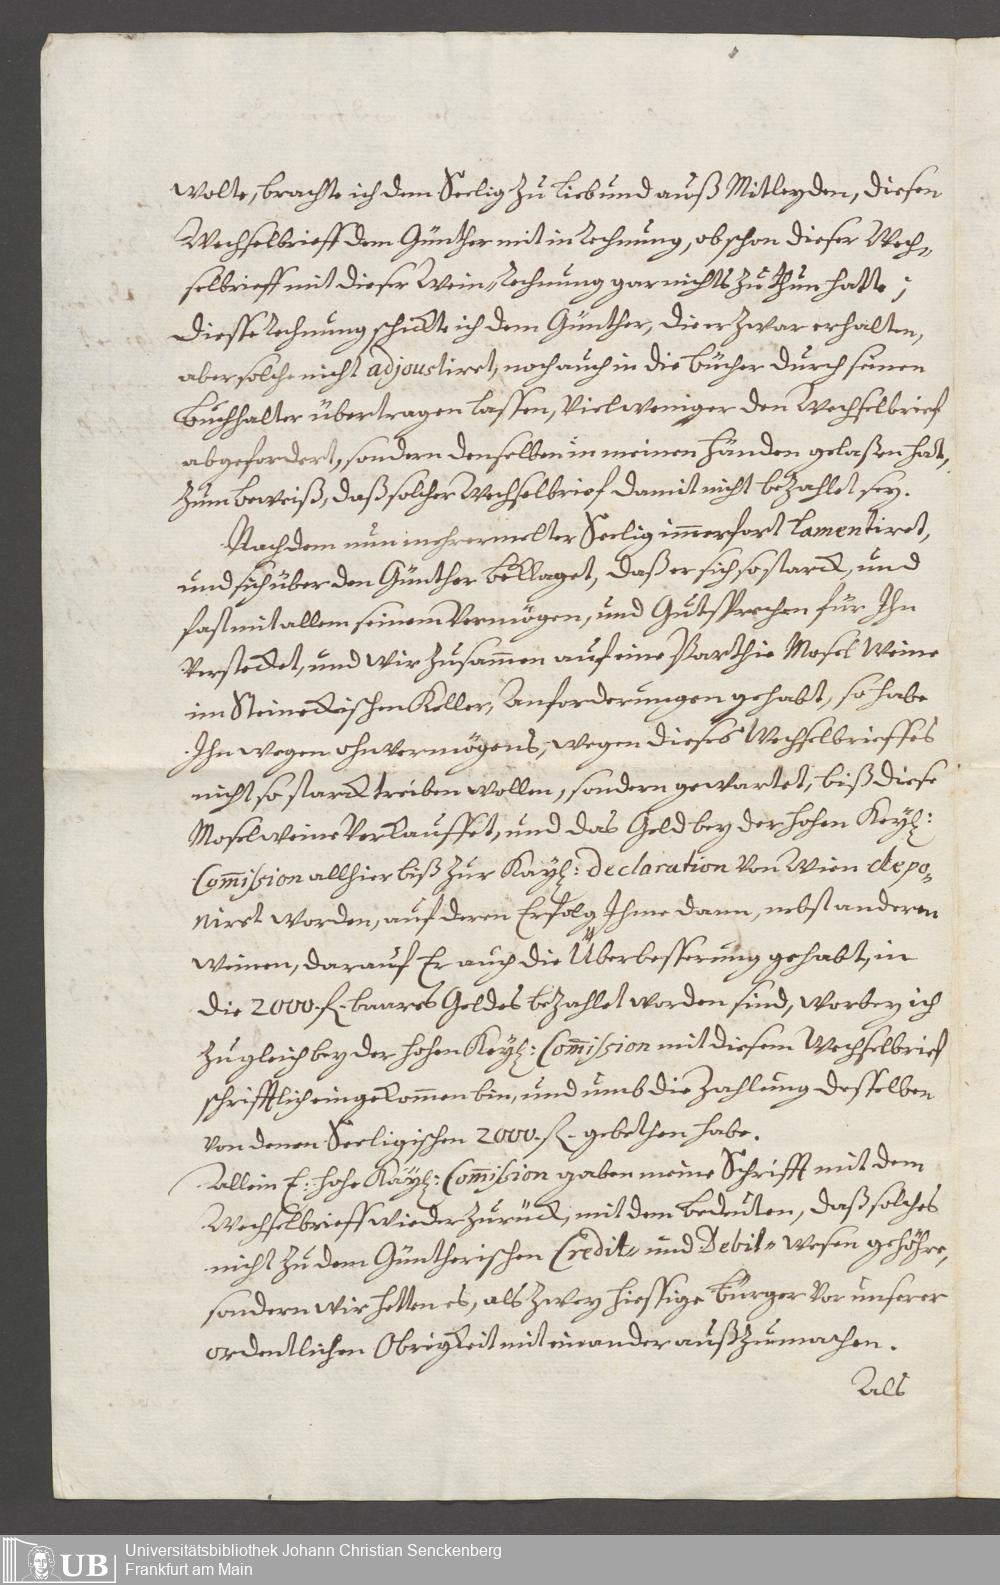 wolte, brachte ich dem Seelig zu Lieb und auß Mitleyden, diesen
Wechselbrieff dem Günther mit in Rechnung, ob schon dieser Wech-
selbrieff mit dieser Wein-Rechnung gar nichts zu thun hatte;
Diesse Rechnung schickte ich dem Günther, die er zwar erhalten,
aber solche nicht adjoustiret, noch auch in die Bücher durch seinen
Buchhalter übertragen lassen, viel weniger den Wechselbrief
abgefordert, sondern denselben in meinen Händen gelaßen hat,
zum Beweiß, daß solcher Wechselbrief damit nicht bezahlet sey.
Nachdem nun mehrermelter Seelig immerfort lamentiret,
und sich über den Günther beklaget, daß er sich so starck, und
fast mit allem seinem Vermögen, und Gutsprechen für Ihn
verstecket, und wir zusammen auf eine Parthie Mosel Weine
im Steineckischen Keller, Anforderungen gehabt, so habe
Ihn wegen ohnvermögens, wegen dieses Wechselbrieffes
nicht so starck treiben wollen, sondern gewartet, biß diese
Moselweine verkauffet, und das Geld bey der hohen Keyl:
Commission allhier biß zur Kayl: declaration von Wien depo-
niret worden, auf deren Erfolg Ihme dann, nebst anderen
Weinen, darauf Er auch die Überbesserung gehabt, in
die 2000. f. baares Geldes bezahlet worden sind, worbey ich
zugleich bey der hohen Keyl: Commission mit diesem Wechselbrief
schrifftlich eingekommen bin, und umb die Zahlung desselben
von denen Seeligischen 2000. f. gebethen habe.
Allein E: hohe Kayl: Commission gaben meine Schrifft mit dem
Wechselbrieff wieder zurück, mit dem Bedeuten, daß solches
nicht zu dem Güntherischen Credit- und Debit- Wesen gehöhre,
sondern wir hetten es, als zwey hiessige Bürger vor unserer
ordentlichen Obrigkeit mit einander auß zu machen.
Als
UB Universitätsbibliothek Johann Christian Senckenberg
Frankfurt am Main